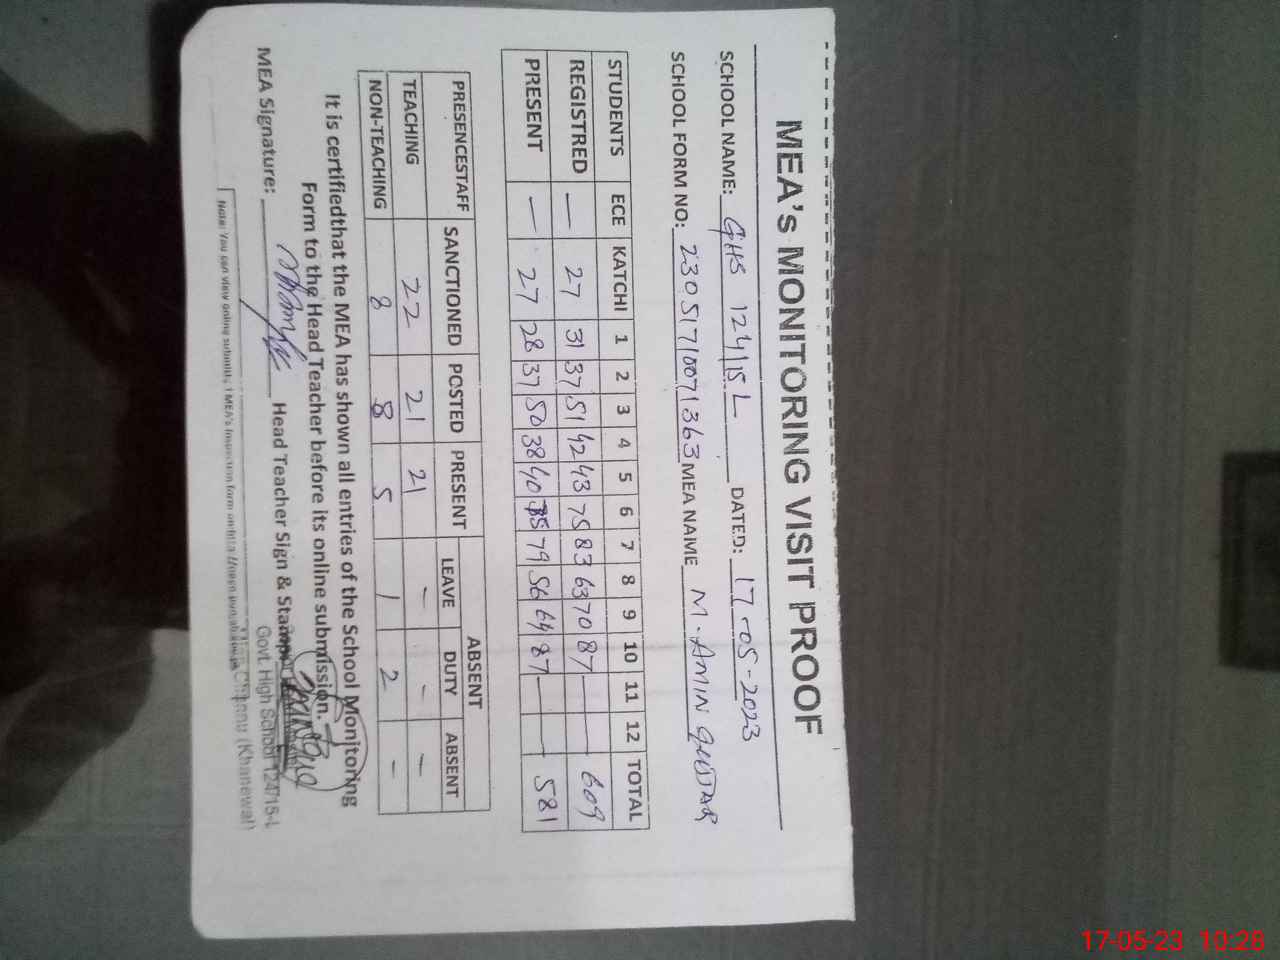 MEA's MONITORING VISIT PROOF
SCHOOL NAME: GHS 124/15 L DATED: 17-05-2023
SCHOOL FORM NO: 23051710071363 MEA NAIME M. AMIN GUJJAR
STUDENTS ECE KATCHI 1 2 3 4 5 6 7 8 9 10 11 12 TOTAL
REGISTRED — 27 31 37 51 42 43 75 83 63 70 87 — — 609
PRESENT — 27 28 37 50 38 40 75 79 56 64 87 — — 581
PRESENCESTAFF SANCTIONED POSTED PRESENT ABSENT
LEAVE DUTY ABSENT
TEACHING 22 21 21 - - -
NON-TEACHING 8 8 5 1 2 -
It is certifiedthat the MEA has shown all entries of the School Monitoring
Form to the Head Teacher before its online submission.
MEA Signature: Head Teacher Sign & Stamp
Govt. High School 124/15-L
Mian Channu (Khanewal)
Note: You can view online submitted MEA's Inspection form on
17-05-23 10:28